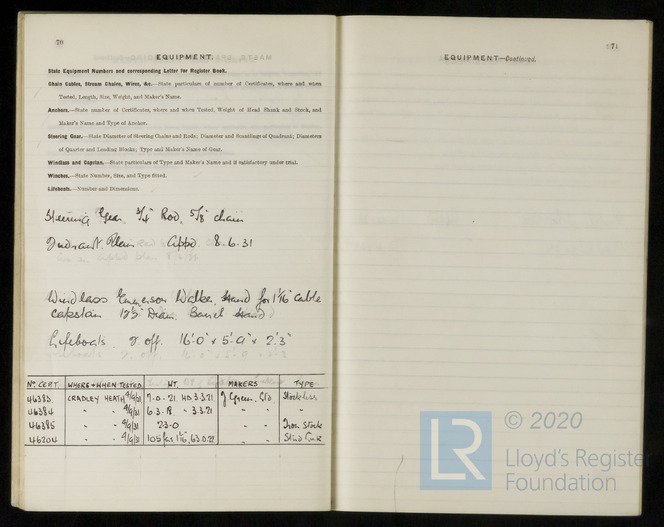 70
EQUIPMENT.
State Equipment Numbers and corresponding Letter for Register Book.
Chain Cables, Stream Chains, Wires, &c.—State particulars of number of Certificates, where and when
Tested, Length, Size, Weight, and Maker's Name.
Anchors.—State number of Certificates, where and when Tested, Weight of Head Shank and Stock, and
Maker's Name and Type of Anchor.
Steering Gear.—State Diameter of Steering Chains and Rods; Diameter and Scantlings of Quadrant; Diameters
of Quarter and Leading Blocks; Type and Maker's Name of Gear.
Windlass and Capstan.—State particulars of Type and Maker's Name and if satisfactory under trial.
Winches.—State Number, Size, and Type fitted.
Lifeboats.—Number and Dimensions.
Steering Gear. 3/4" Rod, 5/8" chain
Quadrant. Plan Appd. 8.6.31
Windlass Emerson Walker Hand for 1 1/16" cable
capstan Diam. Barrel Hand
Lifeboats. 2 off. 16'-0" x 5'-9" x 2'-3"
No CERT. WHERE & WHEN TESTED WT. MAKERS TYPE
46383 CRADLEY HEATH 4/9/31 7.0.21. HD 3.3.21 J Green. C/o Stockless
46384 " " 4/9/31 6.3.18 " 3.3.21 " " "
46385 " " 4/9/31 23.0 Iron Stock
46204 " " 4/9/31 105 1 1/16", 63.0.22 " " Stud Link
71
EQUIPMENT—Continued.
© 2020
LR
Lloyd's Register
Foundation